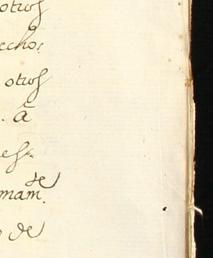 otros
echo:
otros
. â
es
de
mam.
o de